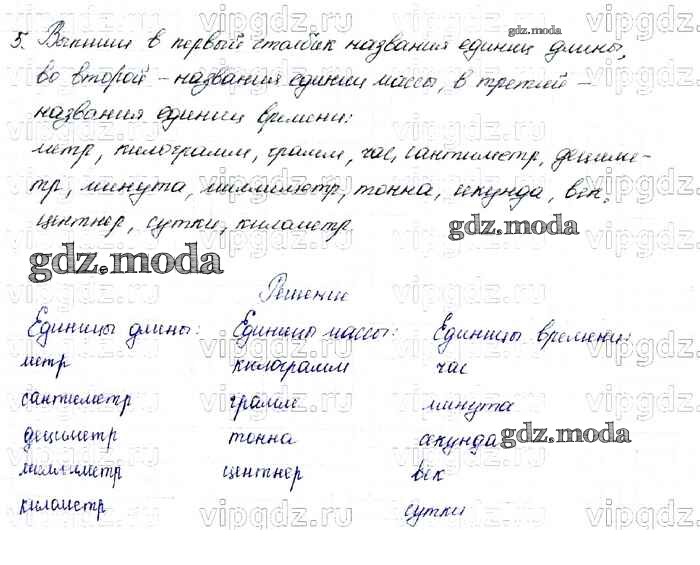 vipgdz.ru vipgdz.ru vipgdz.ru vipgdz.ru
gdz.moda
5. Выпиши в первый столбик названия единиц длины,
во второй – названия единиц массы, в третий –
названия единиц времени:
метр, килограмм, грамм, час, сантиметр, дециме-
тр, минута, миллиметр, тонна, секунда, век,
центнер, сутки, километр
gdz.moda
gdz.moda
Решение
Единицы длины: Единицы массы: Единицы времени:
метр килограмм час
сантиметр грамм минута
дециметр тонна секунда
gdz.moda
миллиметр центнер век
километр сутки
vipgdz.ru vipgdz.ru vipgdz.ru vipgdz.ru